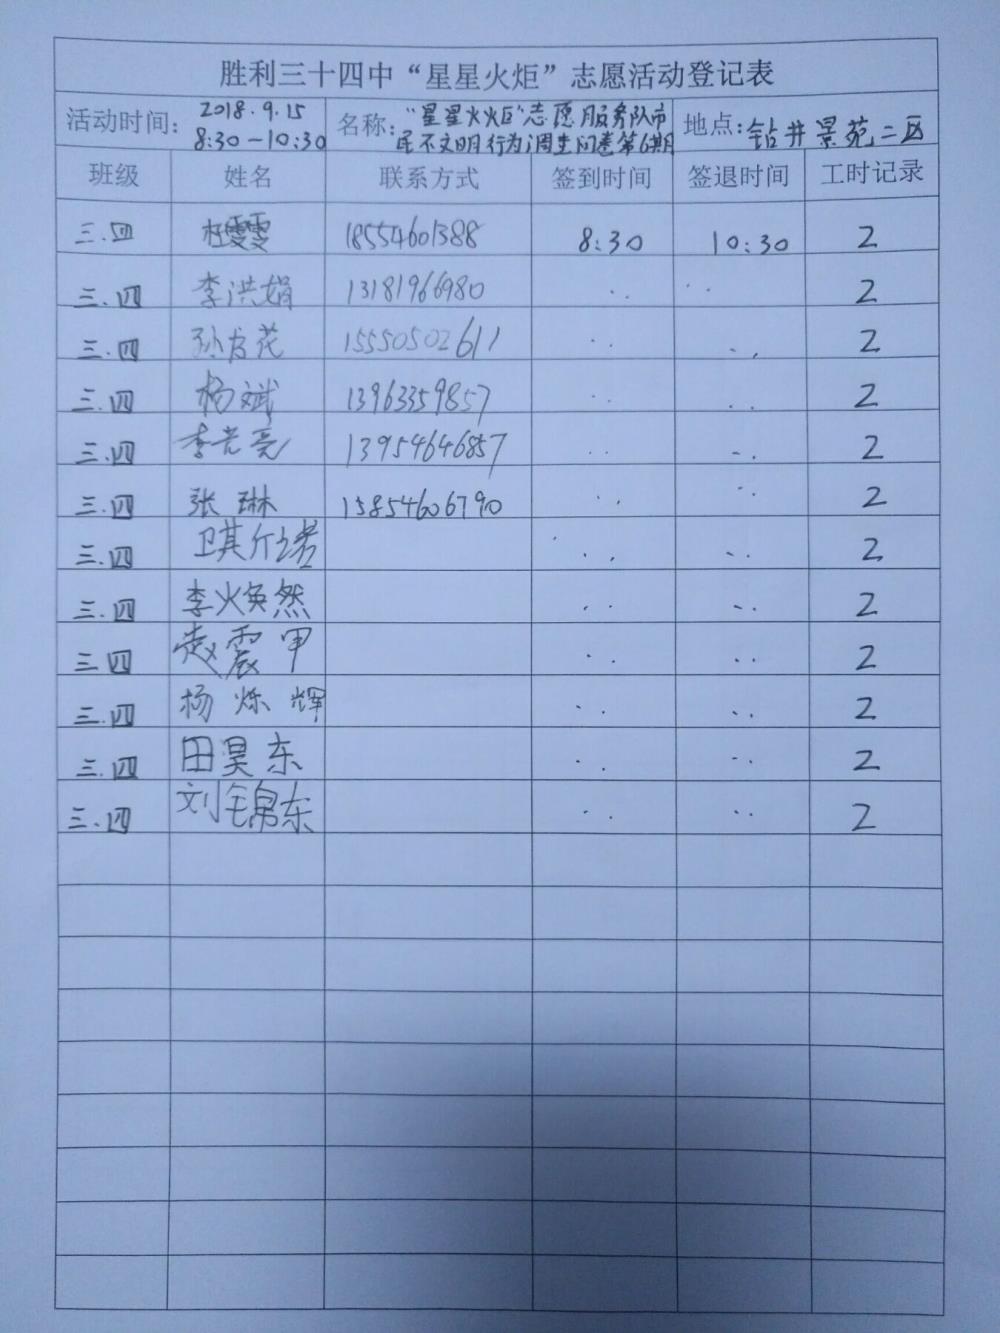 胜利三十四中“星星火炬”志愿活动登记表
活动时间: 2018.9.15 8:30-10:30 名称: “星星火炬”志愿服务队市民不文明行为调查问卷第6期 地点: 钻井景苑二区
班级 姓名 联系方式 签到时间 签退时间 工时记录
三.四 18554601388 8:30 10:30 2
三.四 李洪娟 13181966980 2
三.四 孙友花 15550502611 2
三.四 杨斌 13963359857 2
三.四 李光亮 13954646857 2
三.四 张琳 15854606790 2
三.四 2
三.四 李焕然 2
三.四 赵震甲 2
三.四 杨烁辉 2
三.四 田昊东 2
三.四 刘锦东 2